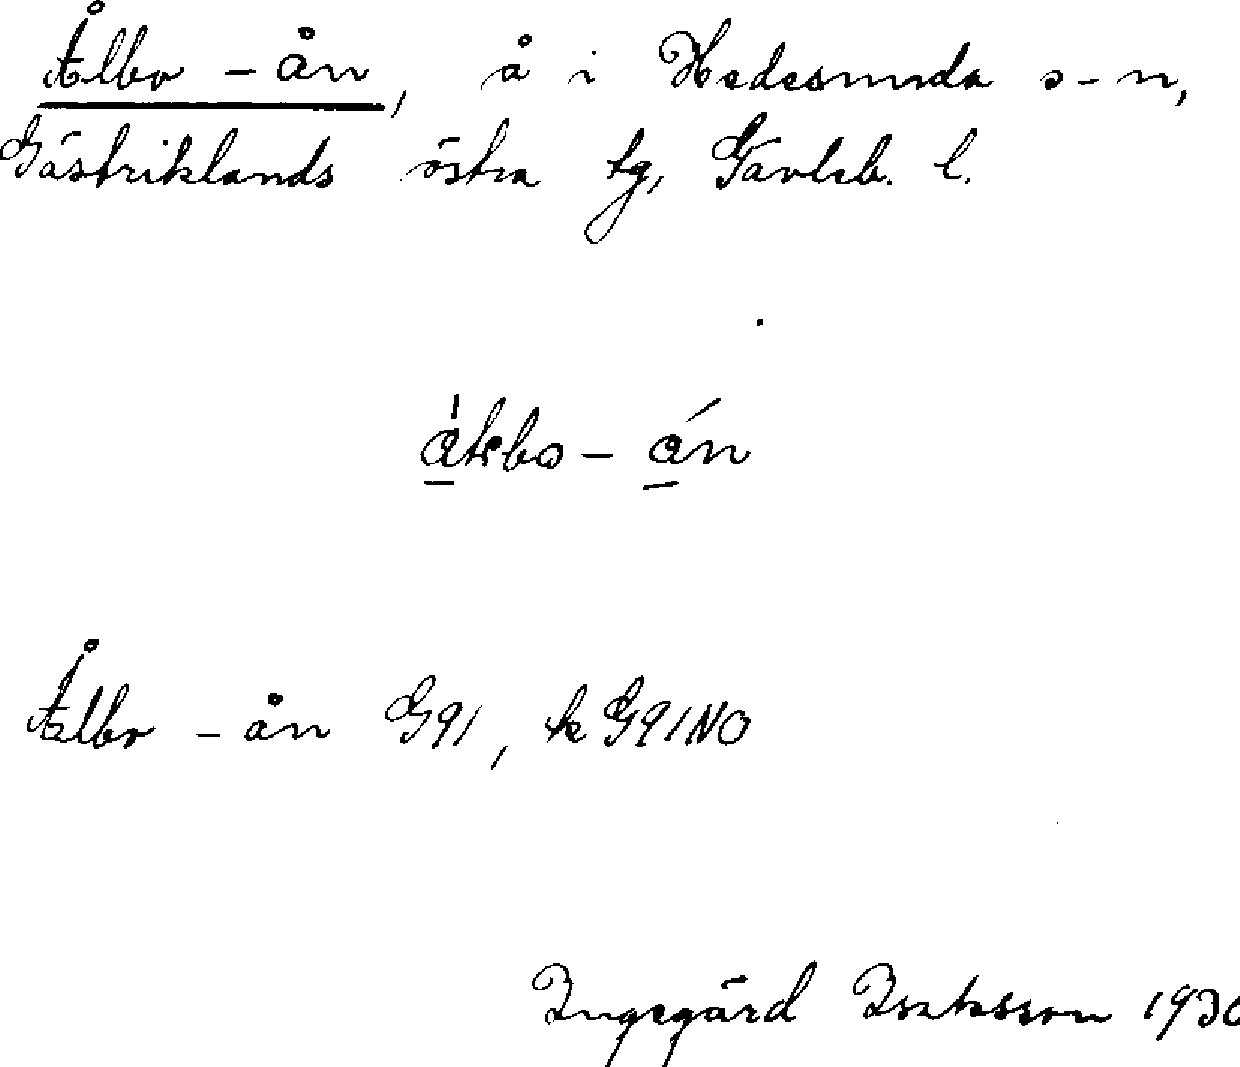 Ålbo - ån, å i Hedesunda s-n,
Gästriklands östra tg, Gävleb. l.
Ålbo - ån G91, k G91NO
Ingegärd Isaksson 1930